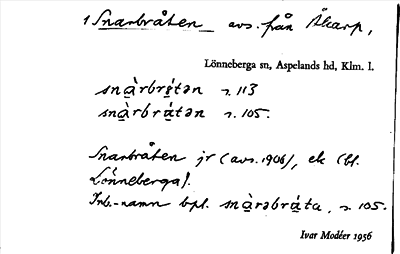 1 Snarbråten avs. från Åkarp,
Lönneberga sn, Aspelands hd, Klm. l.
snàrbrátən s. 113
snàrbrátən s. 105.
Snarbråten jr (avs. 1906), ek (bl.
Lönneberga).
Inb.-namn bpl. snàrəbráta, s. 105.
Ivar Modéer 1956